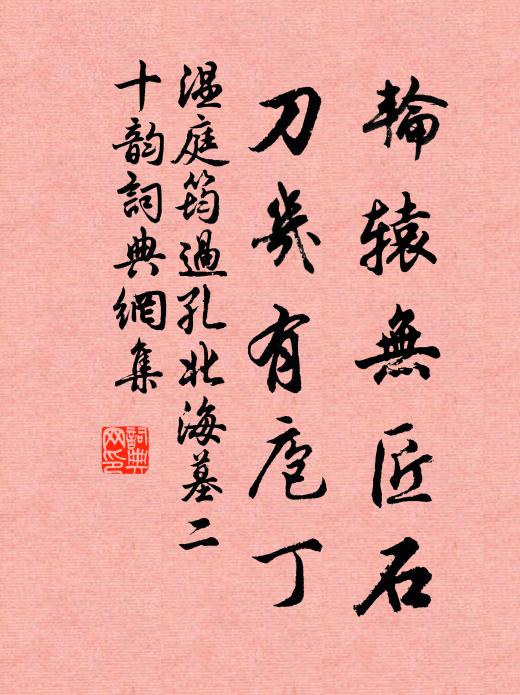 輪辕無匠石
刀几有庖丁
温庭筠過孔北海墓二
十韵詞典網集
詞典
网印